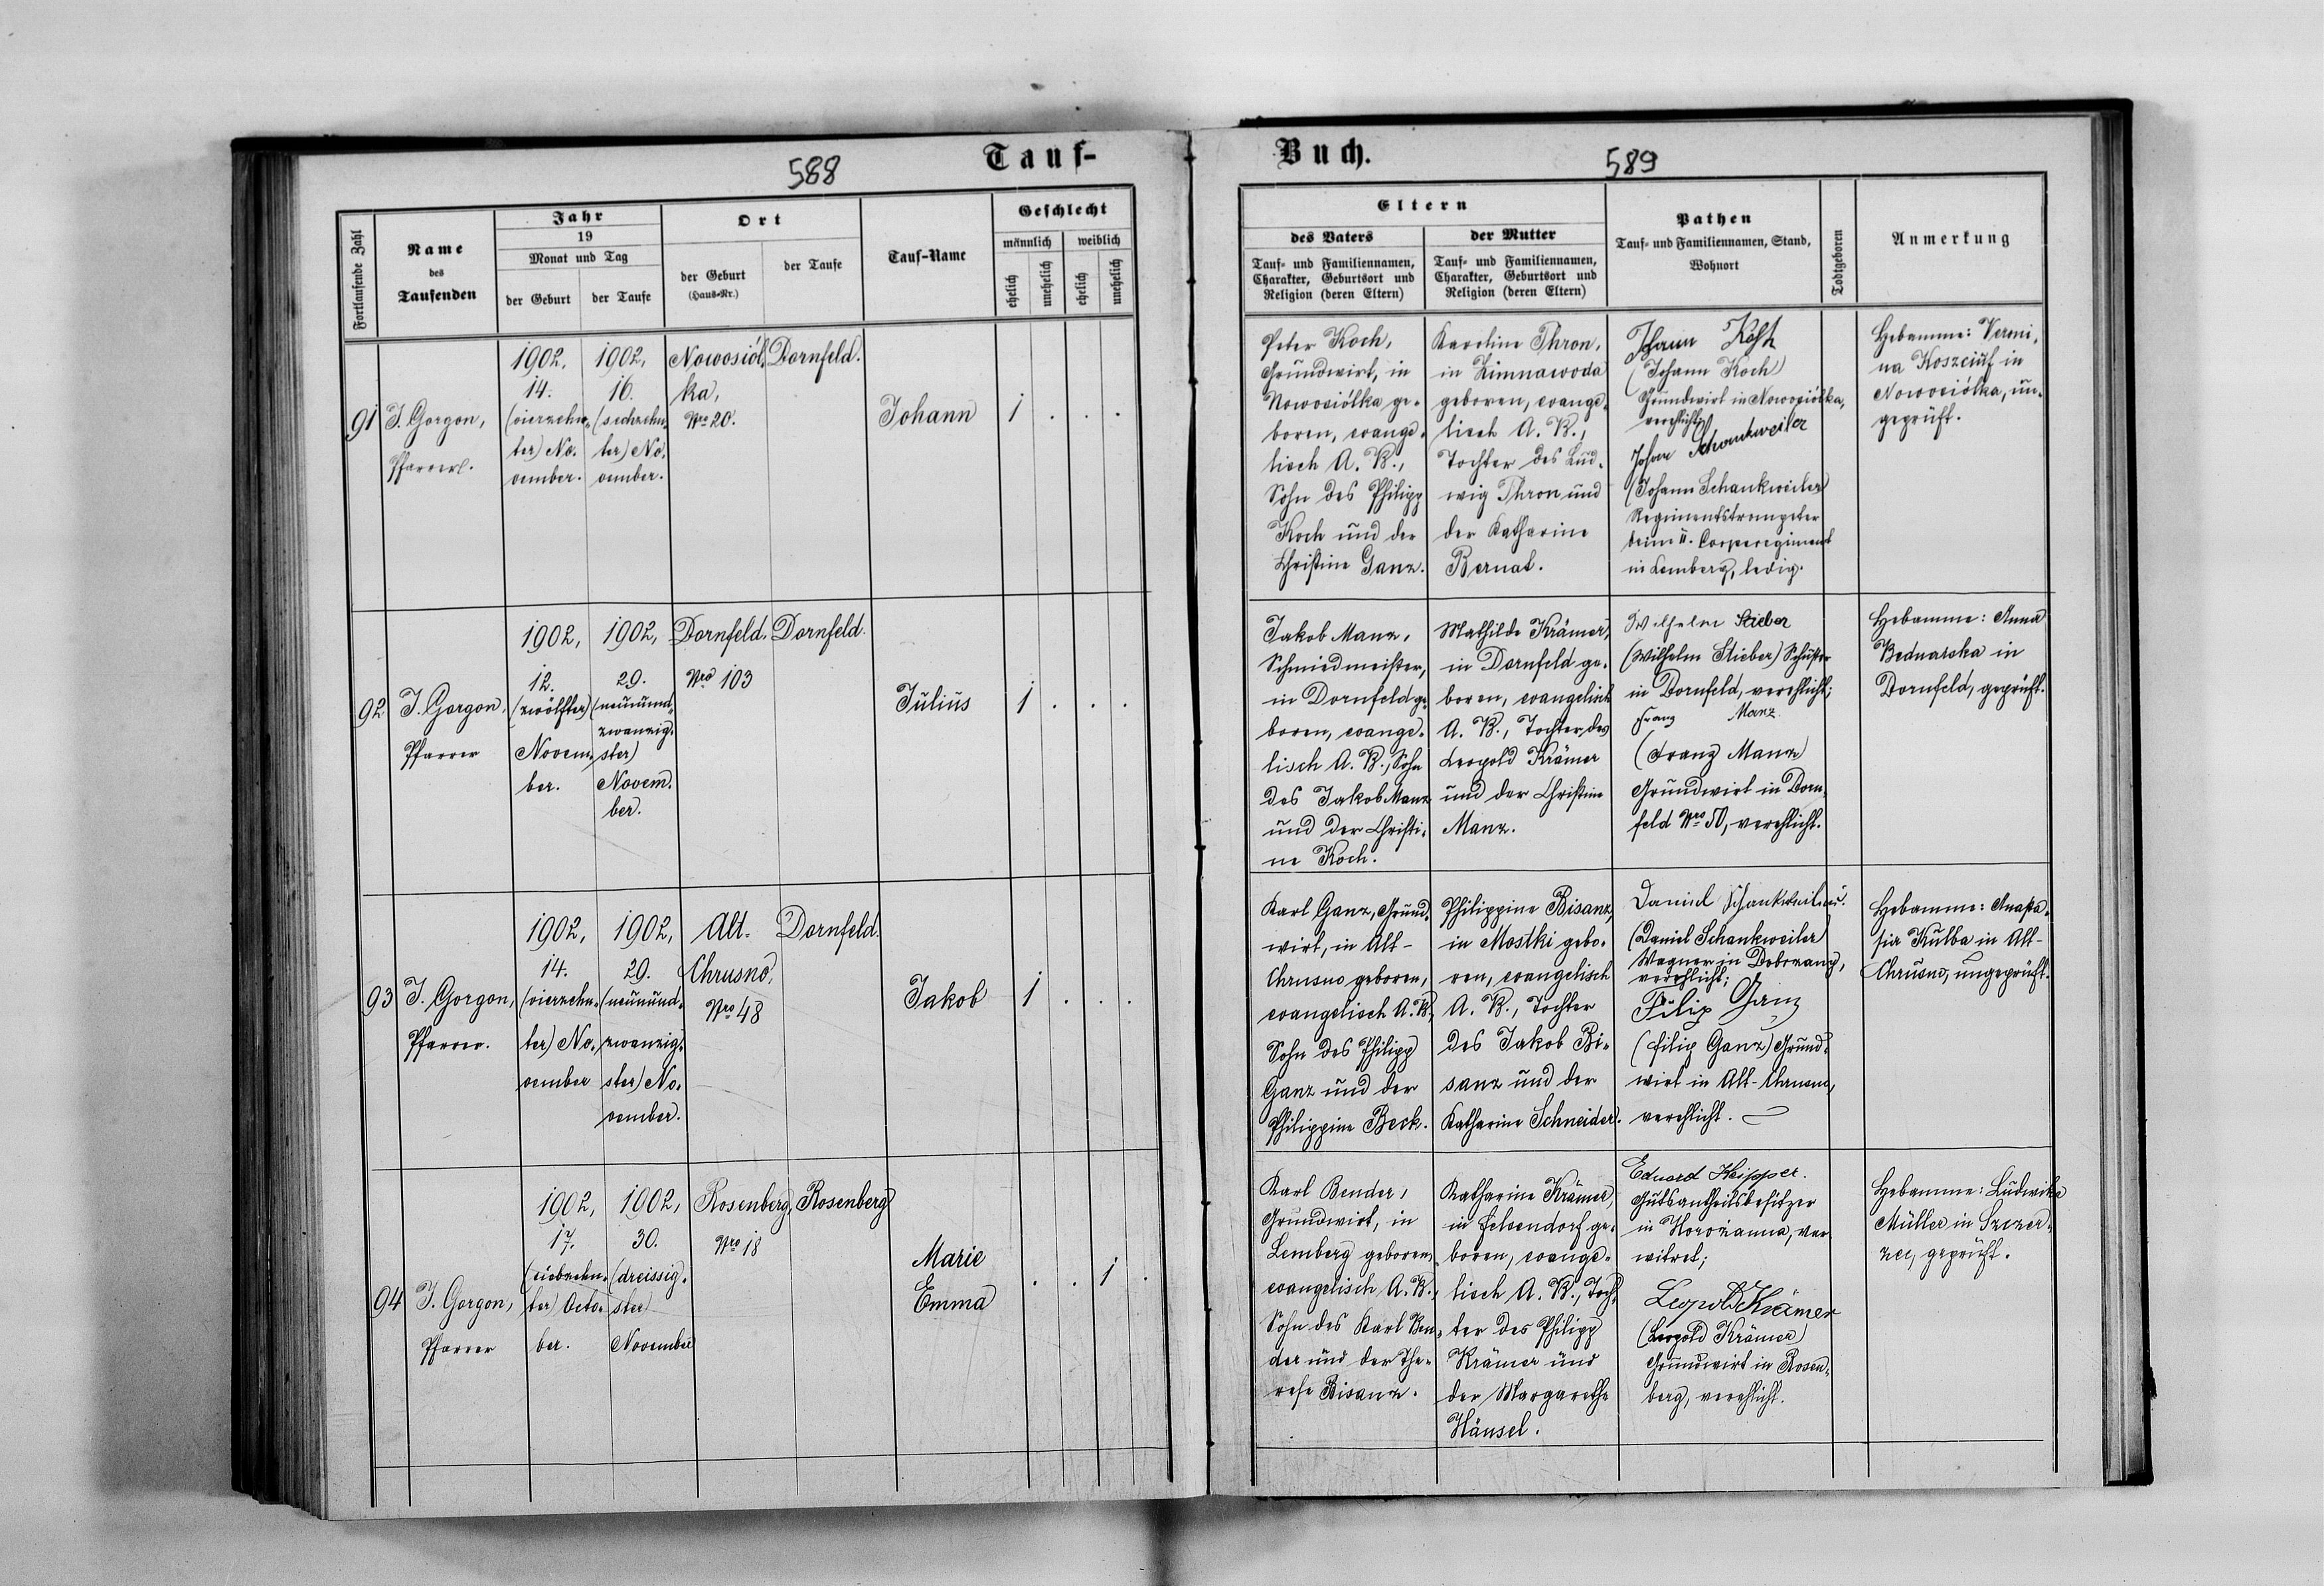 588
Tauf-
Fortlaufende Zahl
Name
des
Taufenden
Jahr
19
Monat und Tag
der Geburt
der Taufe
Ort
der Geburt
(Haus-Nr.)
der Taufe
Tauf-Name
Geschlecht
männlich
weiblich
ehelich
unehelich
ehelich
unehelich
91
J. Gorgon,
Pfarrer.
1902,
14.
(vierzehn-
ter) No-
vember.
1902,
16.
(sechzehn-
ter) No-
vember.
Nowosiół-
ka,
Nro 20.
Dornfeld.
Johann
1 . . .
92
J. Gorgon,
Pfarrer
1902,
12.
(zwölfter)
Novem-
ber.
1902,
29.
(neunund-
zwanzig-
ster)
Novem-
ber.
Dornfeld,
Nro 103
Dornfeld.
Julius
1 . . .
93
J. Gorgon,
Pfarrer.
1902,
14.
(vierzehn-
ter) No-
vember
1902,
29.
(neunund-
zwanzig-
ster) No-
vember.
Alt-
Chrusno,
Nro 48
Dornfeld.
Jakob
1 . . .
94
J. Gorgon,
Pfarrer
1902,
17.
(siebzehn-
ter) Octo-
ber.
1902,
30.
(dreissig-
ster)
November
Rosenberg,
Nro 18
Rosenberg
Marie
Emma
. . 1 .
Buch.
589
Eltern
des Vaters
Tauf- und Familiennamen,
Charakter, Geburtsort und
Religion (deren Eltern)
der Mutter
Tauf- und Familiennamen,
Charakter, Geburtsort und
Religion (deren Eltern)
Pathen
Tauf- und Familiennamen, Stand,
Wohnort
Todtgeboren
Anmerkung
Peter Koch,
Grundwirt, in
Nowosiółka ge-
boren, evange-
lisch A. B.,
Sohn des Philipp
Koch und der
Christine Ganz.
Karoline Thron,
in Zimnawoda
geboren, evange-
lisch A. B.,
Tochter des Lud-
wig Thron und
der Katharine
Bernat.
Johann Koch
(Johann Koch)
Grundwirt in Nowosiółka,
verehlicht;
Johann Schankweiler
(Johann Schankweiler)
Regimentstrompeter
beim 11. Corpsregiment
in Lemberg, ledig.
Hebamme: Veroni-
na in
Nowosiółka, un-
geprüft.
Jakob Manz,
Schmiedmeister,
in Dornfeld ge-
boren, evange-
lisch A. B., Sohn
des Jakob Manz
und der Christi-
ne Koch.
Mathilde Krämer,
in Dornfeld ge-
boren, evangelisch
A. B., Tochter des
Leopold Krämer
und der Christine
Manz.
Wilhelm Stieber
(Wilhelm Stieber) Schuster
in Dornfeld, verehlicht;
Franz Manz.
(Franz Manz)
Grundwirt in Dorn-
feld Nro 50, verehlicht.
Hebamme: Anna
Bednarska in
Dornfeld, geprüft.
Karl Ganz, Grund-
wirt, in Alt-
Chrusno geboren,
evangelisch A. B.,
Sohn des Philipp
Ganz und der
Philippine Beck.
Philippine Bisanz,
in Mostki gebo-
ren, evangelisch
A. B., Tochter
des Jakob Bi-
sanz und der
Katharine Schneider.
Daniel Schankweiler
(Daniel Schankweiler)
Wagner in Dobrzany,
verehlicht;
Filip Ganz
(Filip Ganz) Grund-
wirt in Alt-Chrusno,
verehlicht.
Hebamme: Anasta-
sia Kulba in Alt-
Chrusno, ungeprüft.
Karl Bender,
Grundwirt, in
Lemberg geboren,
evangelisch A. B.,
Sohn des Karl Ben-
der und der The-
rese Bisanz.
Katharine Krämer,
in Felsendorf ge-
boren, evange-
lisch A. B., Toch-
ter des Philipp
Krämer und
der Margarethe
Hänsel.
Eduard Keipper.
Gutsantheilsbesitzer
in Horożanna, ver-
witwet;
Leopold Krämer
(Leopold Krämer)
Grundwirt in Rosen-
berg, verehlicht.
Hebamme: Ludwika
Müller in Szczer-
zec, geprüft.